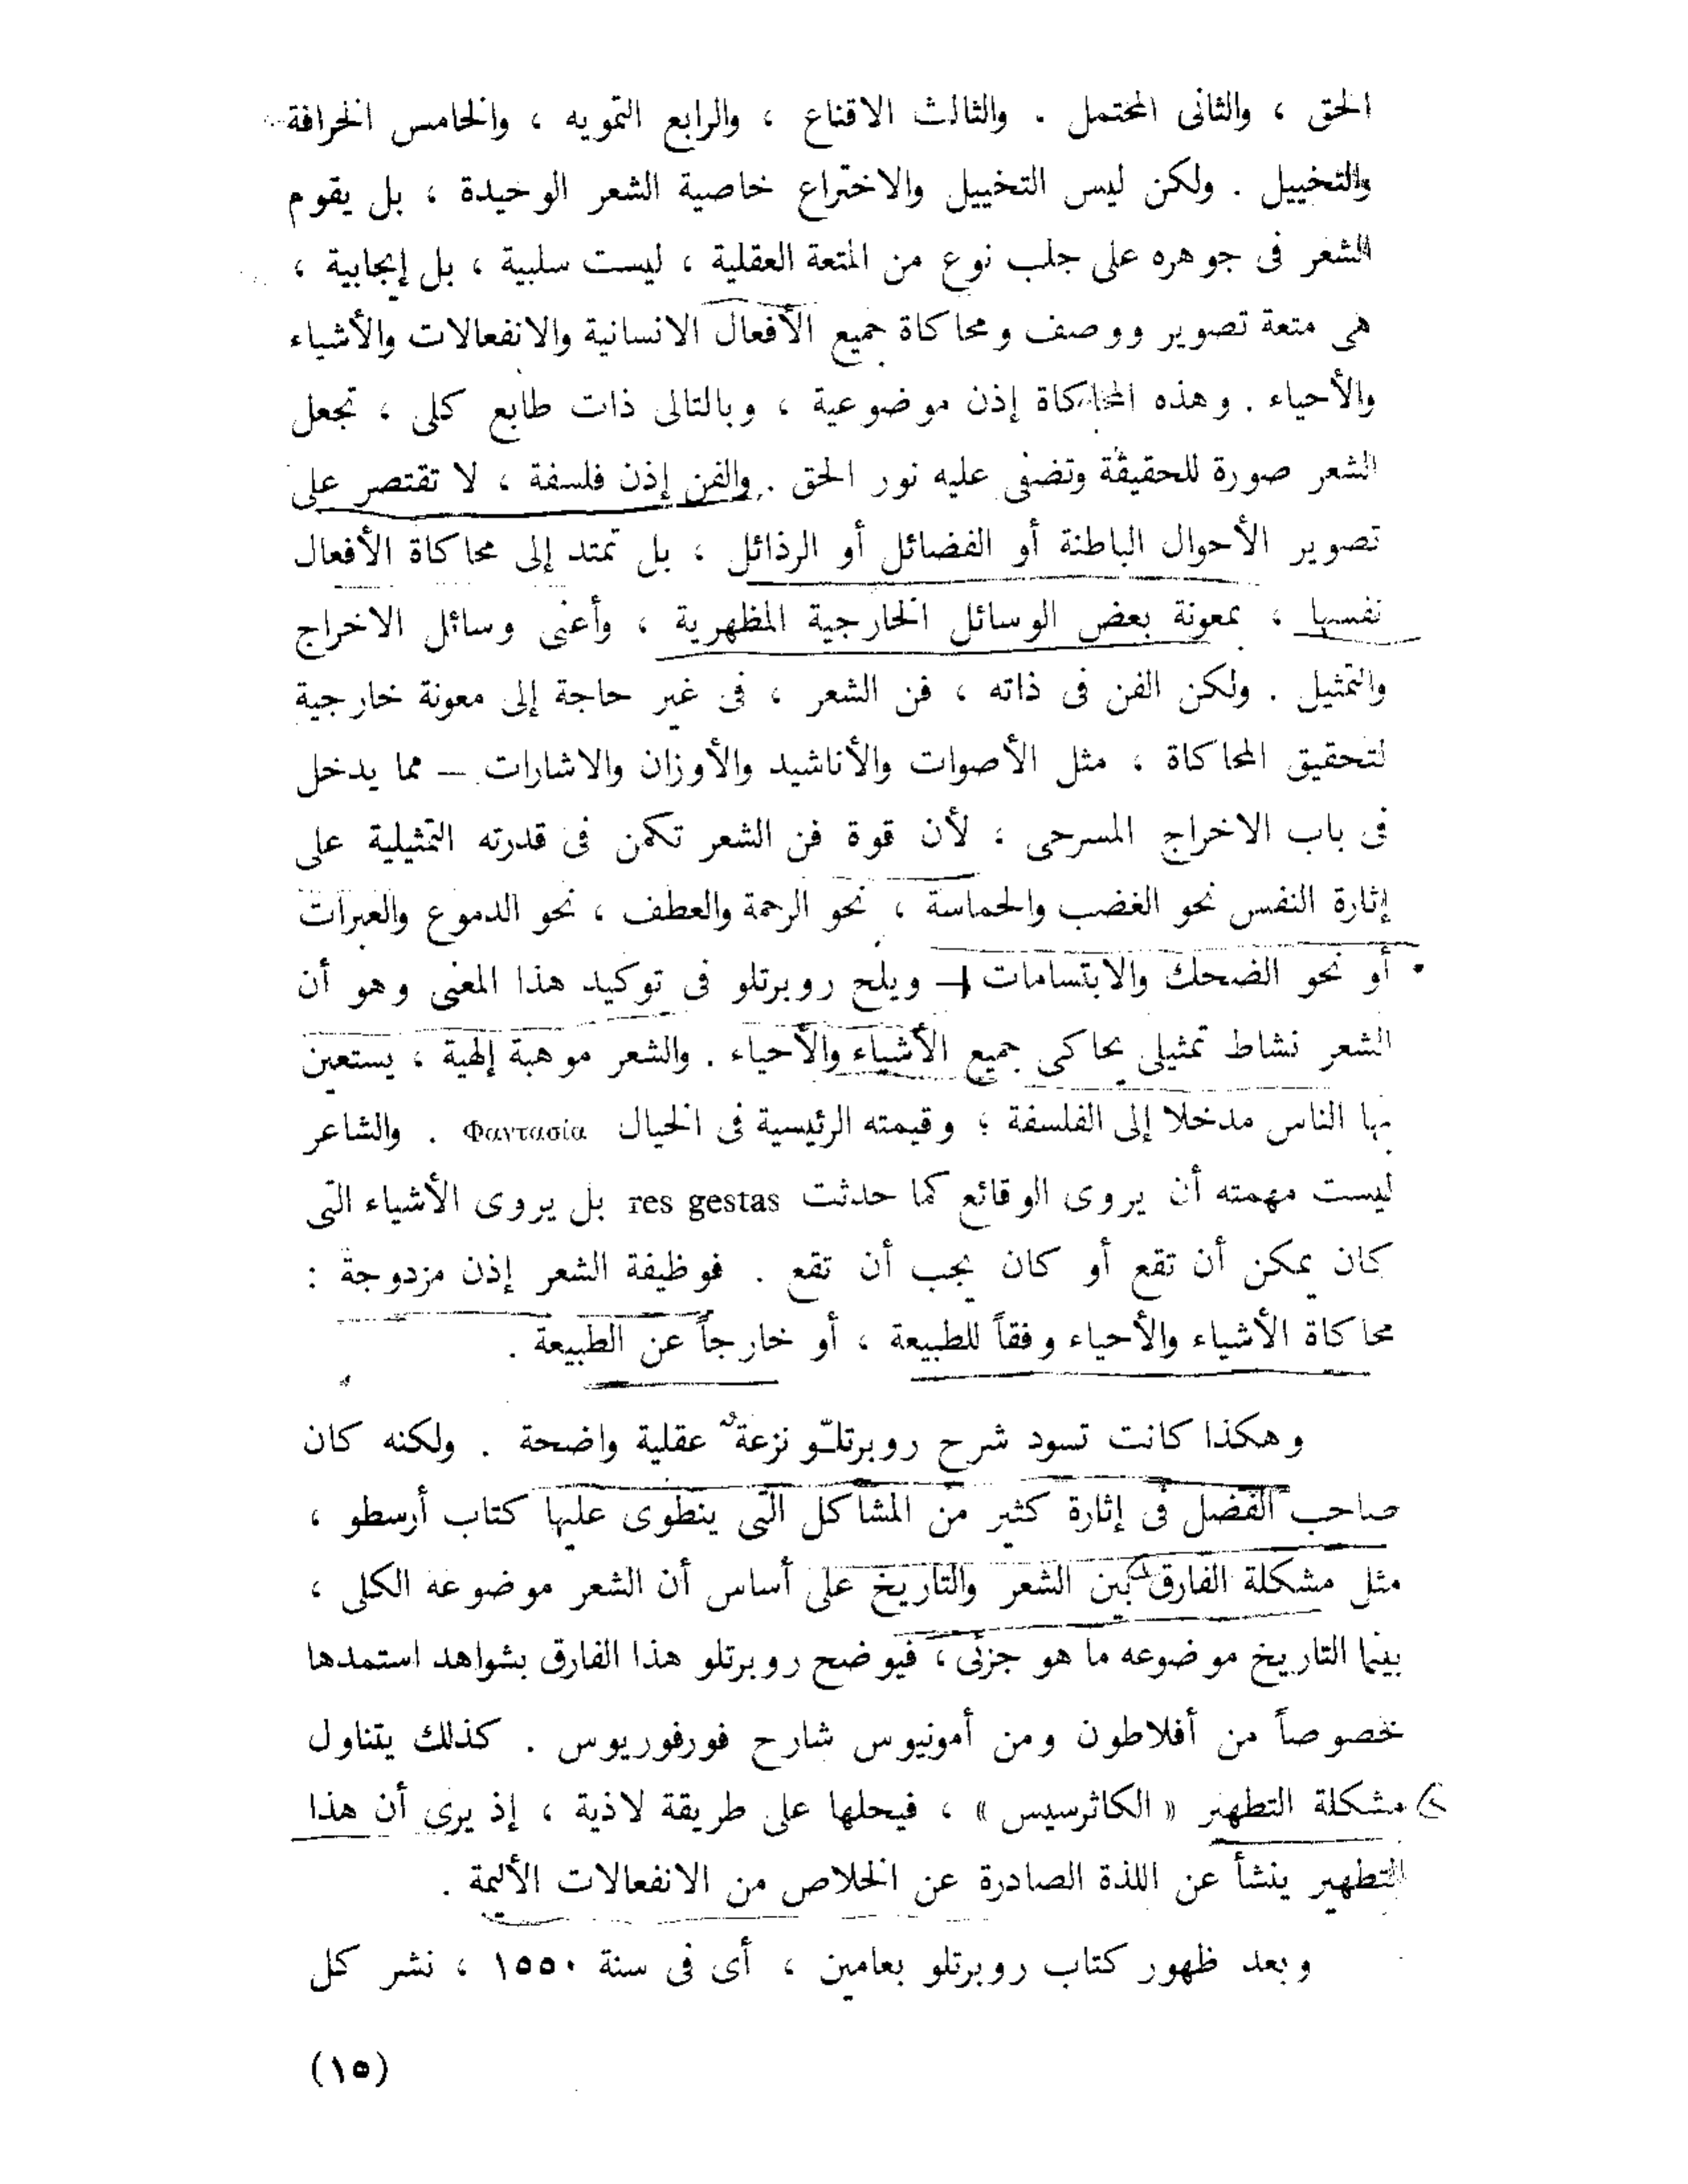 الحق ، والثانى المحتمل . والثالث الاقناع ، والرابع التمويه ، والخامس الخرافة
والتخييل . ولكن ليس التخييل والاختراع خاصية الشعر الوحيدة ، بل يقوم
الشعر فى جوهره على جلب نوع من المتعة العقلية ، ليست سلبية ، بل إيجابية ،
هى متعة تصوير ووصف ومحاكاة جميع الأفعال الانسانية والانفعالات والأشياء
والأحياء . وهذه المحاكاة إذن موضوعية ، وبالتالى ذات طابع كلى ، تجعل
الشعر صورة للحقيقة وتضفى عليه نور الحق . والفن إذن فلسفة ، لا تقتصر على
تصوير الأحوال الباطنة أو الفضائل أو الرذائل ، بل تمتد إلى محاكاة الأفعال
نفسها ، بمعونة بعض الوسائل الخارجية المظهرية ، وأعنى وسائل الاخراج
والتمثيل . ولكن الفن فى ذاته ، فن الشعر ، فى غير حاجة إلى معونة خارجية
لتحقيق المحاكاة ، مثل الأصوات والأناشيد والأوزان والاشارات — مما يدخل
فى باب الاخراج المسرحى ، لأن قوة فن الشعر تكمن فى قدرته التمثيلية على
إثارة النفس نحو الغضب والحماسة ، نحو الرحمة والعطف ، نحو الدموع والعبرات
أو نحو الضحك والابتسامات — ويلح روبرتلو فى توكيد هذا المعنى وهو أن
الشعر نشاط تمثيلى يحاكى جميع الأشياء والأحياء . والشعر موهبة إلهية ، يستعين
بها الناس مدخلا إلى الفلسفة ؛ وقيمته الرئيسية فى الخيال Φαντασία . والشاعر
ليست مهمته أن يروى الوقائع كما حدثت res gestas بل يروى الأشياء التى
كان يمكن أن تقع أو كان يجب أن تقع . فوظيفة الشعر إذن مزدوجة :
محاكاة الأشياء والأحياء وفقاً للطبيعة ، أو خارجاً عن الطبيعة .
وهكذا كانت تسود شرح روبرتلّو نزعة عقلية واضحة . ولكنه كان
صاحب الفضل فى إثارة كثير من المشاكل التى ينطوى عليها كتاب أرسطو ،
مثل مشكلة الفارق بين الشعر والتاريخ على أساس أن الشعر موضوعه الكلى ،
بينما التاريخ موضوعه ما هو جزئى ، فيوضح روبرتلو هذا الفارق بشواهد استمدها
خصوصاً من أفلاطون ومن أمونيوس شارح فورفوريوس . كذلك يتناول
مشكلة التطهير « الكاثرسيس » ، فيحلها على طريقة لاذية ، إذ يرى أن هذا
التطهير ينشأ عن اللذة الصادرة عن الخلاص من الانفعالات الأليمة .
وبعد ظهور كتاب روبرتلو بعامين ، أى فى سنة ١٥٥٠ ، نشر كل
(١٥)